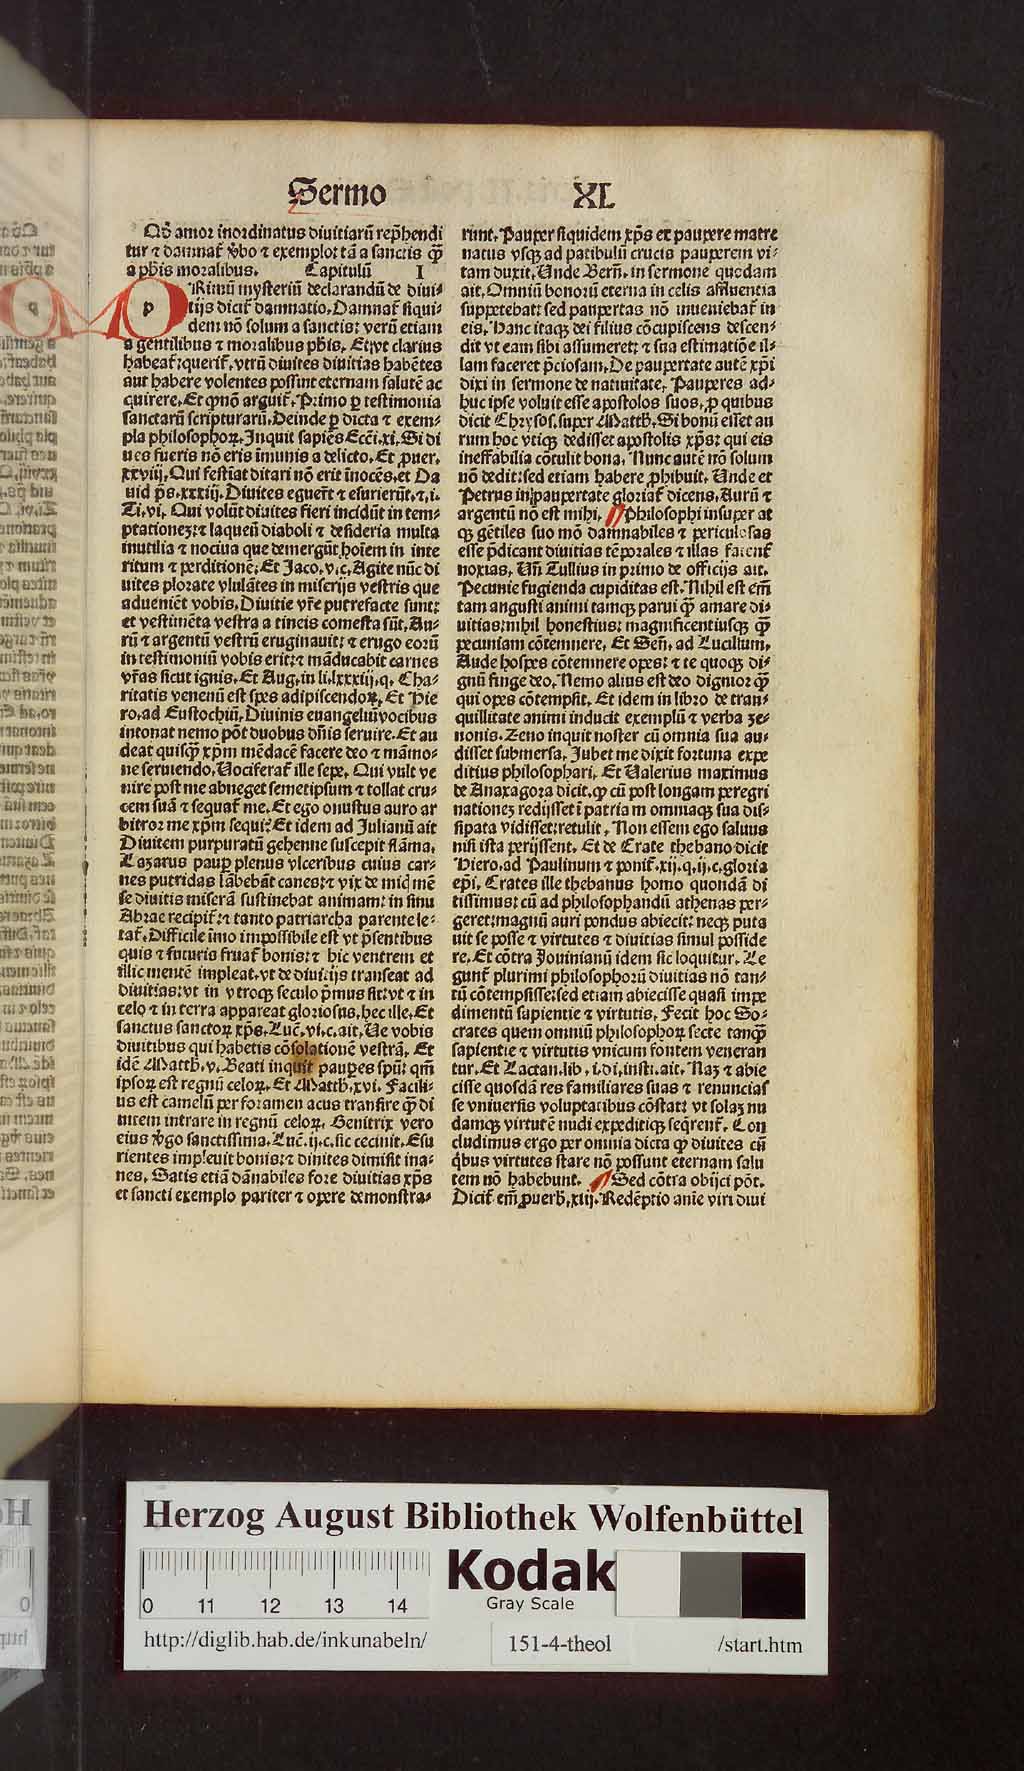 Sermo XL
Qď amor inordinatus diuitiarū rep̄hendi
tur ⁊ damnat̄ v̄bo ⁊ exemplo: tā a sanctis q̄ꝫ
a pħis moralibus. Capitulū I
PRimū mysteriū declarandū de diui-
tijs dicit̄ damnatio. Damnat̄ siqui-
dem nō solum a sanctis: verū etiam
a gentilibus ⁊ moralibus pħis. Et vt clarius
habeat̄: querit̄. vtrū diuites diuitias habētes
aut habere volentes possint eternam salutē ac
quirere. Et q̨ nō arguit̄. Primo ꝑ testimonia
sanctarū scripturarū. Deinde ꝑ dicta ⁊ exem-
pla philosophoꝝ. Inquit sapiēs Ecci̅. xi. Si di
ues fueris nō eris īmunis a delicto. Et ꝓuer.
xxviij. Qui festīat ditari nō erit inocēs. et Da
uid p̄s. xxxiij. Diuites eguer̄t ⁊ esurierūt. ⁊. i.
Ti. vi. Qui volūt diuites fieri incidūt in tem-
ptationez: ⁊ laqueū diaboli ⁊ desideria multa
inutilia ⁊ nociua que demergūt hoīem in inte
ritum ⁊ perditionē: Et Jaco. v. c. Agite nūc di
uites plorate vlulātes in miserijs vestris que
adueniēt vobis. Diuitie vr̄e putrefacte sunt:
et vestimēta vestra a tineis comesta sūt. Au-
rū ⁊ argentū vestrū eruginauit: ⁊ erugo eorū
in testimoniū vobis erit: ⁊ māducabit carnes
vr̄as sicut ignis. Et Aug. in li. lxxxiij. q. Cha-
ritatis venenū est spes adipiscendoꝝ. Et Hie
ro. ad Eustochiū. Diuinis euangelij vocibus
intonat nemo pōt duobus dn̄is seruire. Et au
deat quisq̄ꝫ xp̄m mēdacē facere deo ⁊ māmo-
ne seruiendo. Vociferat̄ ille sepe. Qui vult ve
nire post me abneget semetipsum ⁊ tollat cru-
cem suā ⁊ sequat̄ me. Et ego onustus auro ar
bitror me xp̄m sequi? Et idem ad Julianū ait
Diuitem purpuratū gehenne suscepit flāma.
Lazarus paup̄ plenus vlceribus cuius car-
nes putridas lābebāt canes: ⁊ vix de miq mē
se diuitis miserā sustinebat animam: in sinu
Abrae recipit̄: ⁊ tanto patriarcha parente le-
tat̄. Difficile īmo impossibile est vt p̄sentibus
quis ⁊ futuris fruat̄ bonis: ⁊ hic ventrem et
illic mentē impleat. vt de diuitijs transeat ad
diuitias: vt in vtroqꝫ seculo p̄mus sit: vt ⁊ in
celo ⁊ in terra appareat gloriosus. hec ille. Et
sanctus sanctoꝝ xp̄s. Luc̄. vi. c. ait. Ve vobis
diuitibus qui habetis cōsolationē vestrā. Et
idē Mattħ. v. Beati inquit pauꝑes spū: qm̄
ipsoꝝ est regnū celoꝝ. Et Mattħ. xvi. Facili-
us est camelū per foramen acus transire q̄ꝫ di
uitem intrare in regnū celoꝝ. Genitrix vero
eius v̄go sanctissima. Luc̄. ij. c. sic cecinit. Esu
rientes impleuit bonis: ⁊ diuites dimisit ina-
nes. Satis etiā dānabiles fore diuitias xp̄s
et sancti exemplo pariter ⁊ opere demonstra-
runt. Pauper siquidem xp̄s ex paupere matre
natus vsqꝫ ad patibulū crucis pauperem vi-
tam duxit. Unde Berñ. in sermone quodam
ait. Omniū bonorū eterna in celis affluentia
suppetebat: sed paupertas nō inueniebat̄ in
eis. Hanc itaqꝫ dei filius cōcupiscens descen-
dit vt eam sibi assumeret: ⁊ sua estimatiōe il-
lam faceret p̄ciosam. De paupertate autē xp̄i
dixi in sermone de natiuitate. Pauperes ad-
huc ipse voluit esse apostolos suos. ꝓ quibus
dicit Chrysos. super Mattħ. Si bonū esset au
rum hoc vtiqꝫ dedisset apostolis xp̄s: qui eis
ineffabilia cōtulit bona. Nunc autē nō solum
nō dedit: sed etiam habere ꝓhibuit. Unde et
Petrus in paupertate gloriat̄ dicens. Aurū ⁊
argentū nō est mihi. Philosophi insuper at
qꝫ gētiles suo mō damnabiles ⁊ periculosas
esse p̄dicant diuitias tēporales ⁊ illas fatent̄
noxias. Uñ Tullius in primo de officijs ait.
Pecunie fugienda cupiditas est. Nihil est em̄
tam angusti animi tamqꝫ parui q̄ꝫ amare di-
uitias: nihil honestius: magnificentiusqꝫ q̄ꝫ
pecuniam cōtemnere. Et Señ. ad Lucillum.
Aude hospes cōtemnere opes: ⁊ te quoqꝫ di-
gnū finge deo. Nemo alius est deo dignior q̄ꝫ
qui opes cōtempsit. Et idem in libro de tran-
quillitate animi inducit exemplū ⁊ verba ze-
nonis. Zeno inquit noster cū omnia sua au-
disset submersa. Jubet me dixit fortuna expe
ditius philosophari. Et Ualerius maximus
de Anaxagora dicit. ꝙ cū post longam peregri
nationez redijsset ī patriam omniaqꝫ sua dis-
sipata vidisset: retulit. Non essem ego saluus
nisi ista perijssent. Et de Crate thebano dicit
Hiero. ad Paulinum ⁊ ponit̄. xij. q. ij. c. gloria
ep̄i. Crates ille thebanus homo quondā di
tissimus: cū ad philosophandū athenas per-
geret: magnū auri pondus abiecit: neqꝫ puta
uit se posse ⁊ virtutes ⁊ diuitias simul posside
re. Et cōtra Jouinianū idem sic loquitur. Le
gunt̄ plurimi philosophorū diuitias nō tan-
tū cōtempsisse: sed etiam abiecisse quasi impe
dimentū sapientie ⁊ virtutis. Fecit hoc So-
crates quem omniū philosophoꝝ secte tanq̄ꝫ
sapientie ⁊ virtutis vnicum fontem veneran
tur. Et Lactan. lib. i. di. insti. ait. Naꝫ ⁊ abie
cisse quosdā res familiares suas ⁊ renuncias
se vniuersis voluptatibus cōstat: vt solaꝫ nu
damqꝫ virtutē nudi expeditiqꝫ seq̄rent̄. Con
cludimus ergo per omnia dicta ꝙ diuites cū
q̄bus virtutes stare nō possunt eternam salu
tem nō habebunt. Sed cōtra obijci pōt.
Dicit̄ em̄ ꝓuerb̄. xiij. Redēptio anie viri diui
Herzog August Bibliothek Wolfenbüttel
Kodak
Gray Scale
0 11 12 13 14
http://diglib.hab.de/inkunabeln/ 151-4-theol /start.htm